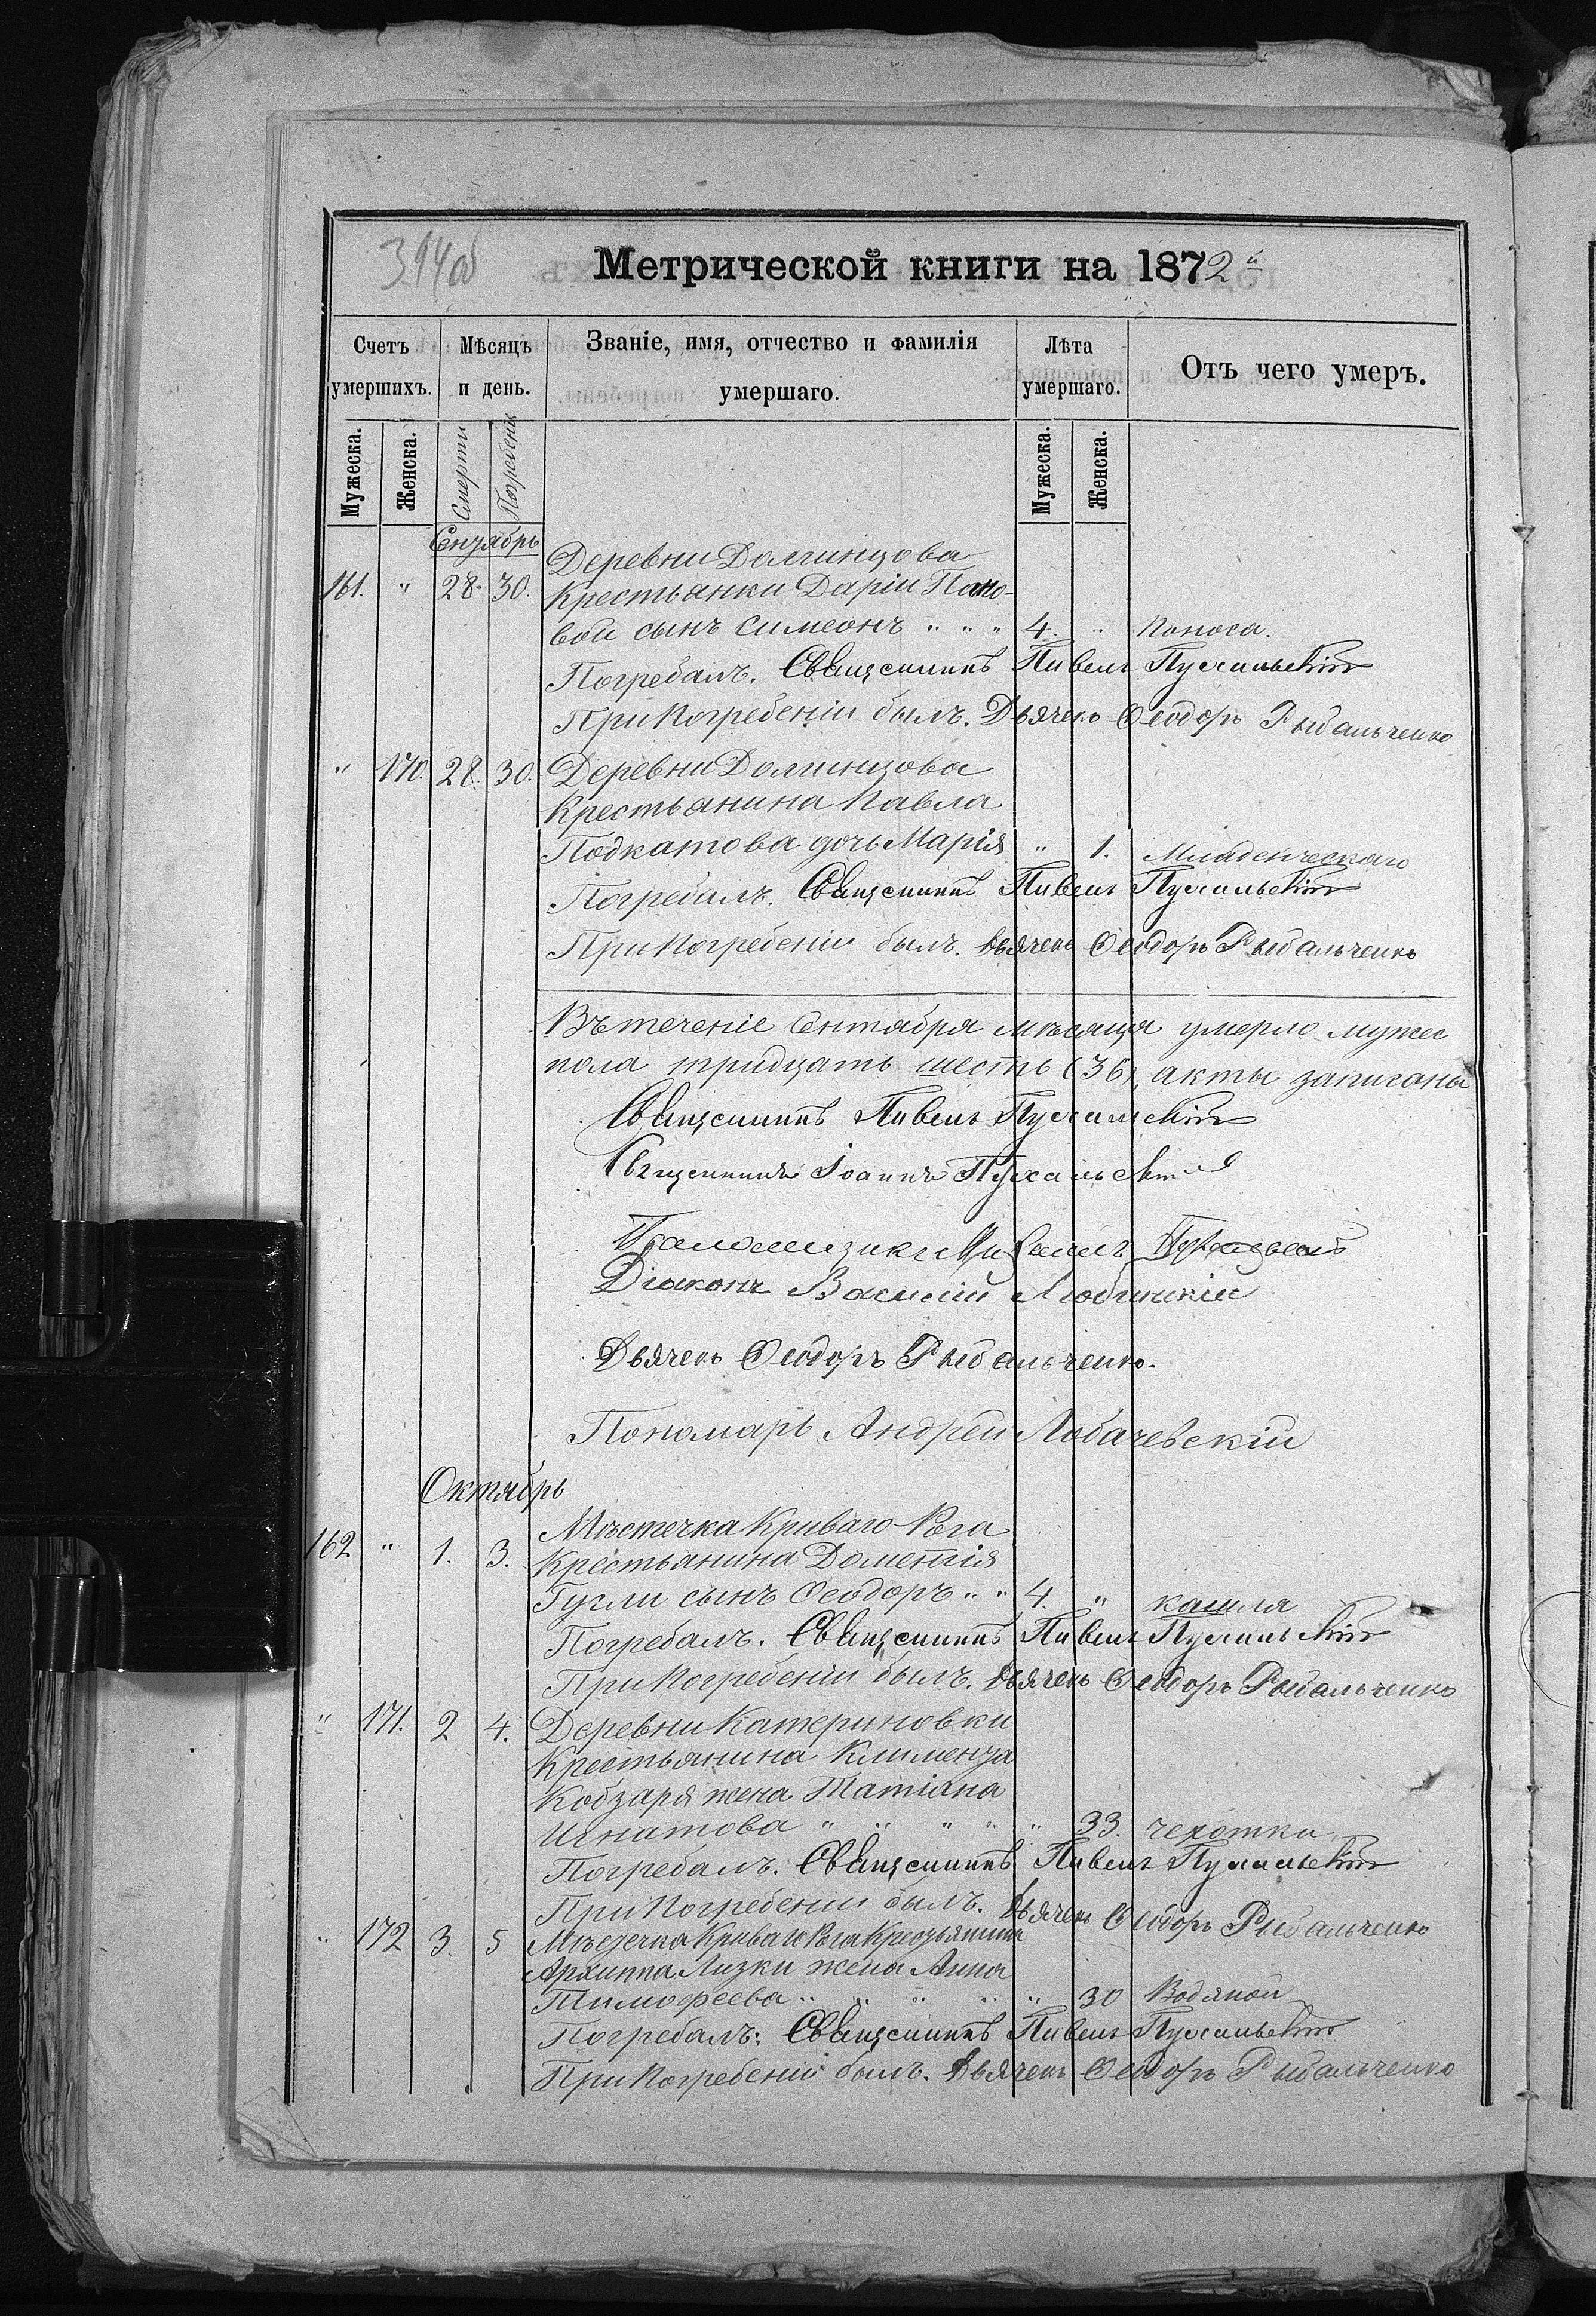 394об
Метрической книги на 1872й
Счетъ умершихъ.
Мѣсяцъ и день.
Званіе, имя, отчество и фамилія умершаго.
Лѣта умершаго.
Отъ чего умеръ.
Мужеска. Женска. Смерти Погребенія Мужеска. Женска.
Сентябрь
Деревни Долгинцова
161. " 28. 30. Крестьянки Даріи Попо-
вой сынъ Симеонъ " " " 4. " Поноса.
Погребалъ. Священникъ Павелъ Пухальскій
При погребеніи былъ. Дьячекъ Ѳеодоръ Рыбальченко
" 170. 28. 30. Деревни Долгинцова
Крестьянина Павла
Подкатова дочь Марія " 1. Младенческаго
Погребалъ. Священникъ Павелъ Пухальскій
При погребеніи былъ. Дьячекъ Ѳеодоръ Рыбальченко
Въ теченіе Сентября мѣсяца умерло мужес
пола тридцать шесть (36), акты записаны
Священникъ Павелъ Пухальскій
Священникъ Іоаннъ Пухальскій
Михаилъ
Діаконъ Василій Любицкій
Дьячекъ Ѳеодоръ Рыбальченко.
Пономарь Андрей Лобачевскій
Октябрь
Мѣстечка Криваго-Рога
162. " 1. 3. Крестьянина Дометія
Гугли сынъ Ѳеодоръ " " 4. " кашля
Погребалъ. Священникъ Павелъ Пухальскій
При погребеніи былъ. Дьячекъ Ѳеодоръ Рыбальченко
" 171. 2 4. Деревни Катериновки
Крестьянина Климента
Кобзаря жена Татіана
Игнатова " " " " " 33. чехотки
Погребалъ. Священникъ Павелъ Пухальскій
При погребеніи былъ. Дьячекъ Ѳеодоръ Рыбальченко
" 172 3. 5 Мѣстечка Криваго Рога Крестьянина
Архиппа Лизки жена Анна
Тимофеева " " " " " 30 Водяной
Погребалъ: Священникъ Павелъ Пухальскій
При погребеніи былъ. Дьячекъ Ѳеодоръ Рыбальченко